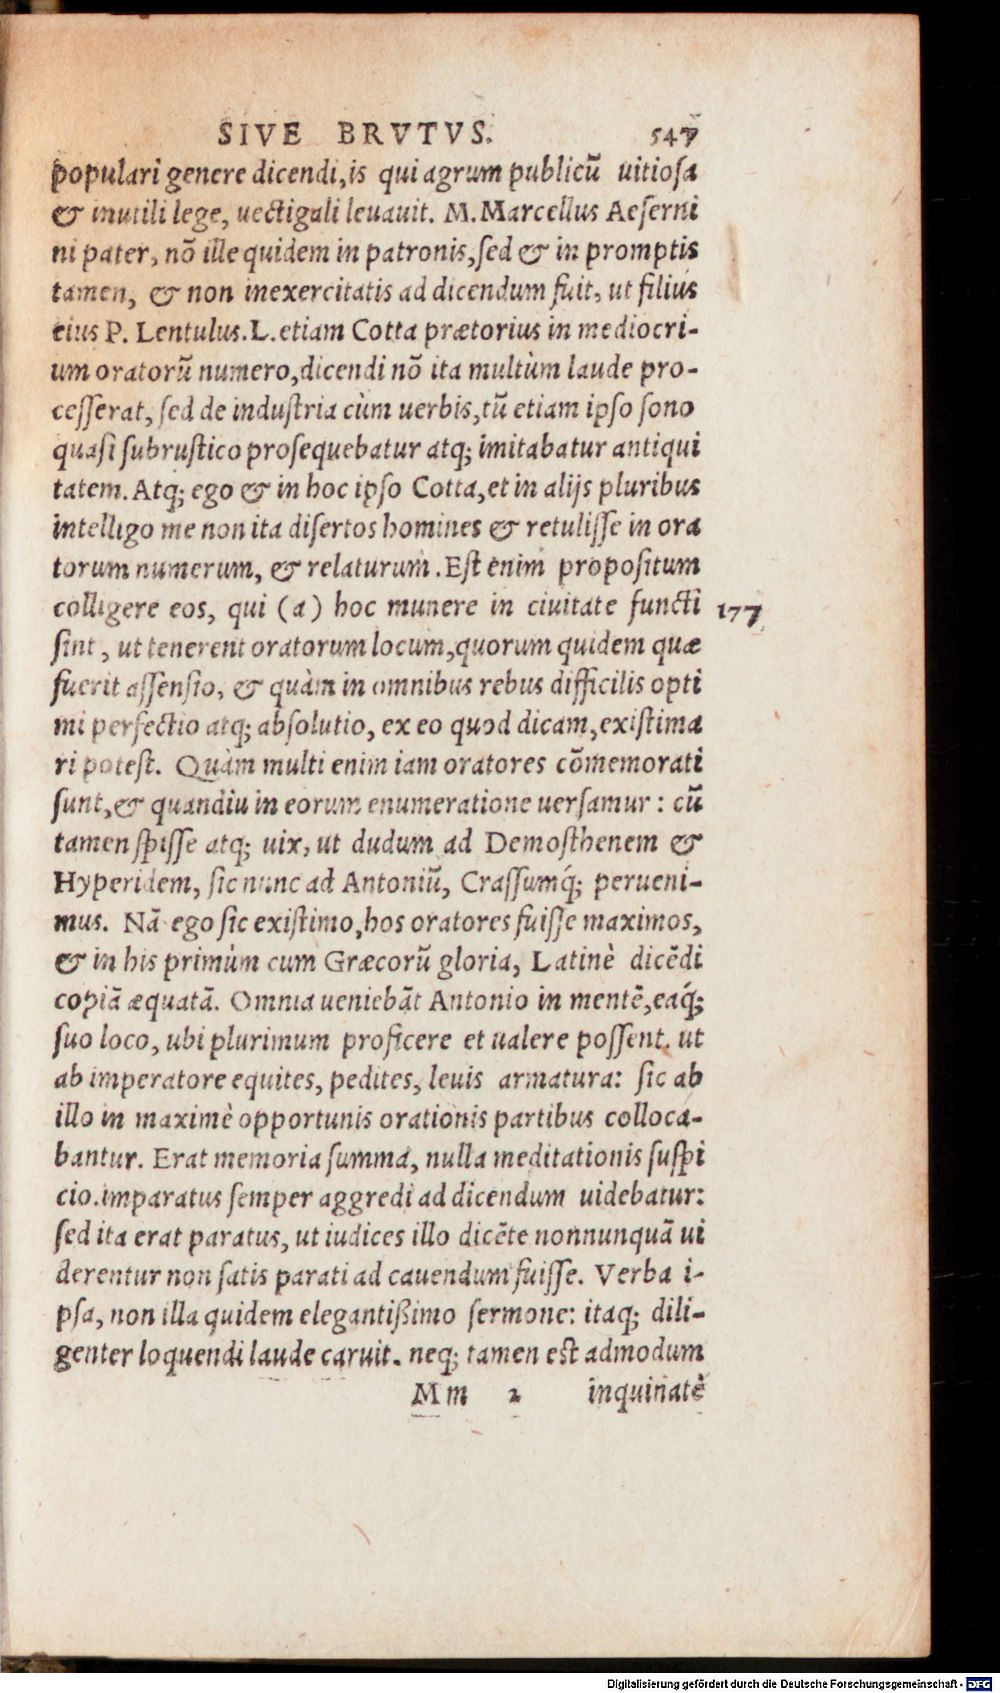 SIVE BRVTVS. 547
populari genere dicendi, is qui agrum publicũ uitiosa
& inutili lege, uectigali leuauit. M. Marcellus Aeserni
ni pater, nõ ille quidem in patronis, sed & in promptis
tamen, & non inexercitatis ad dicendum fuit, ut filius
eius P. Lentulus. L. etiam Cotta prætorius in mediocri-
um oratorũ numero, dicendi nõ ita multùm laude pro-
cesserat, sed de industria cùm uerbis, tũ etiam ipso sono
quasi subrustico prosequebatur atq; imitabatur antiqui
tatem. Atq; ego & in hoc ipso Cotta, et in alijs pluribus
intelligo me non ita disertos homines & retulisse in ora
torum numerum, & relaturum. Est enim propositum
colligere eos, qui (a) hoc munere in ciuitate functi 177
sint, ut tenerent oratorum locum, quorum quidem quæ
fuerit assensio, & quàm in omnibus rebus difficilis opti
mi perfectio atq; absolutio, ex eo quod dicam, existima
ri potest. Quàm multi enim iam oratores cõmemorati
sunt, & quandiu in eorum enumeratione uersamur: cũ
tamen spisse atq; uix, ut dudum ad Demosthenem &
Hyperidem, sic nunc ad Antoniũ, Crassumq́; perueni-
mus. Nã ego sic existimo, hos oratores fuisse maximos,
& in his primùm cum Græcorũ gloria, Latinè dicẽdi
copiã æquatã. Omnia ueniebãt Antonio in mentẽ, eaq́;
suo loco, ubi plurimum proficere et ualere possent. ut
ab imperatore equites, pedites, leuis armatura: sic ab
illo in maximè opportunis orationis partibus colloca-
bantur. Erat memoria summa, nulla meditationis suspi
cio. imparatus semper aggredi ad dicendum uidebatur:
sed ita erat paratus, ut iudices illo dicẽte nonnunquã ui
derentur non satis parati ad cauendum fuisse. Verba i-
psa, non illa quidem elegantißimo sermone: itaq; dili-
genter loquendi laude caruit. neq; tamen est admodum
Mm 2 inquinatè
Digitalisierung gefördert durch die Deutsche Forschungsgemeinschaft - DFG